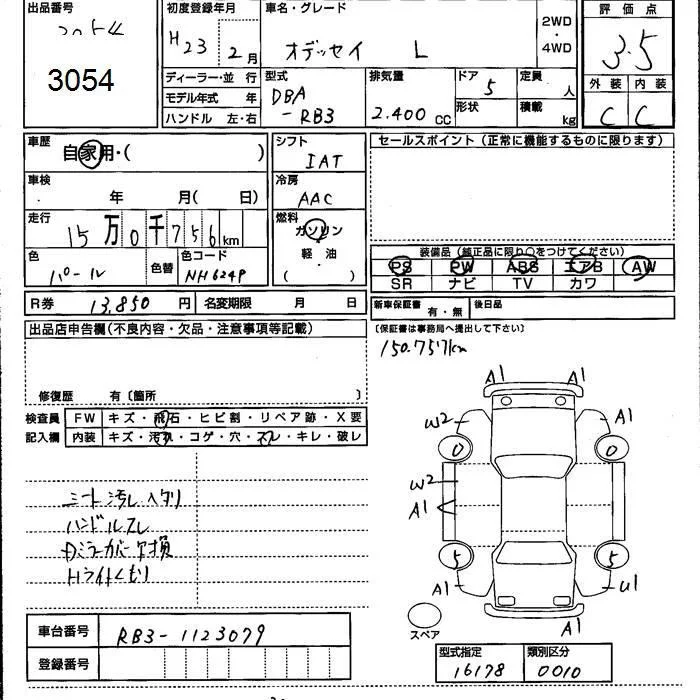 出品番号
3054
初度登録年月
H23 2月
車名・グレード
オデッセイ L
2WD
・
4WD
評価点
3.5
外装 内装
C C
ディーラー・並行
モデル年式 年
ハンドル 左・右
型式
DBA
-RB3
排気量
2.400 CC
ドア
5
形状
定員
人
積載
kg
車歴
自家用・( )
シフト
IAT
セールスポイント(正常に機能するものに限ります)
車検
年 月( 日)
冷房
AAC
走行
15万0千756km
燃料
ガソリン
軽・油
( )
色
パール
色替
色コード
NH624P
装備品(純正品に限り○をつけてください)
PS PW ABS エアB AW
SR ナビ TV カワ
R券 13,850円
名変期限 月 日
新車保証書
有・無
後日品
(保証書は事務局へ提出して下さい)
出品店申告欄(不良内容・欠品・注意事項等記載)
150.757km
修復歴 有〔箇所 〕
検査員
記入欄
FW キズ・飛石・ヒビ割・リペア跡・X要
内装 キズ・汚れ・コゲ・穴・スレ・キレ・破レ
シート汚レヘタリ
ハンドルスレ
Dミラーカバー欠損
Hライトくもり
A1 A1
W2 A1
0 0
W2
A1
5 5
A1 U1
A1
スペア
車台番号 RB3-1123079
登録番号
型式指定
16178
類別区分
0010